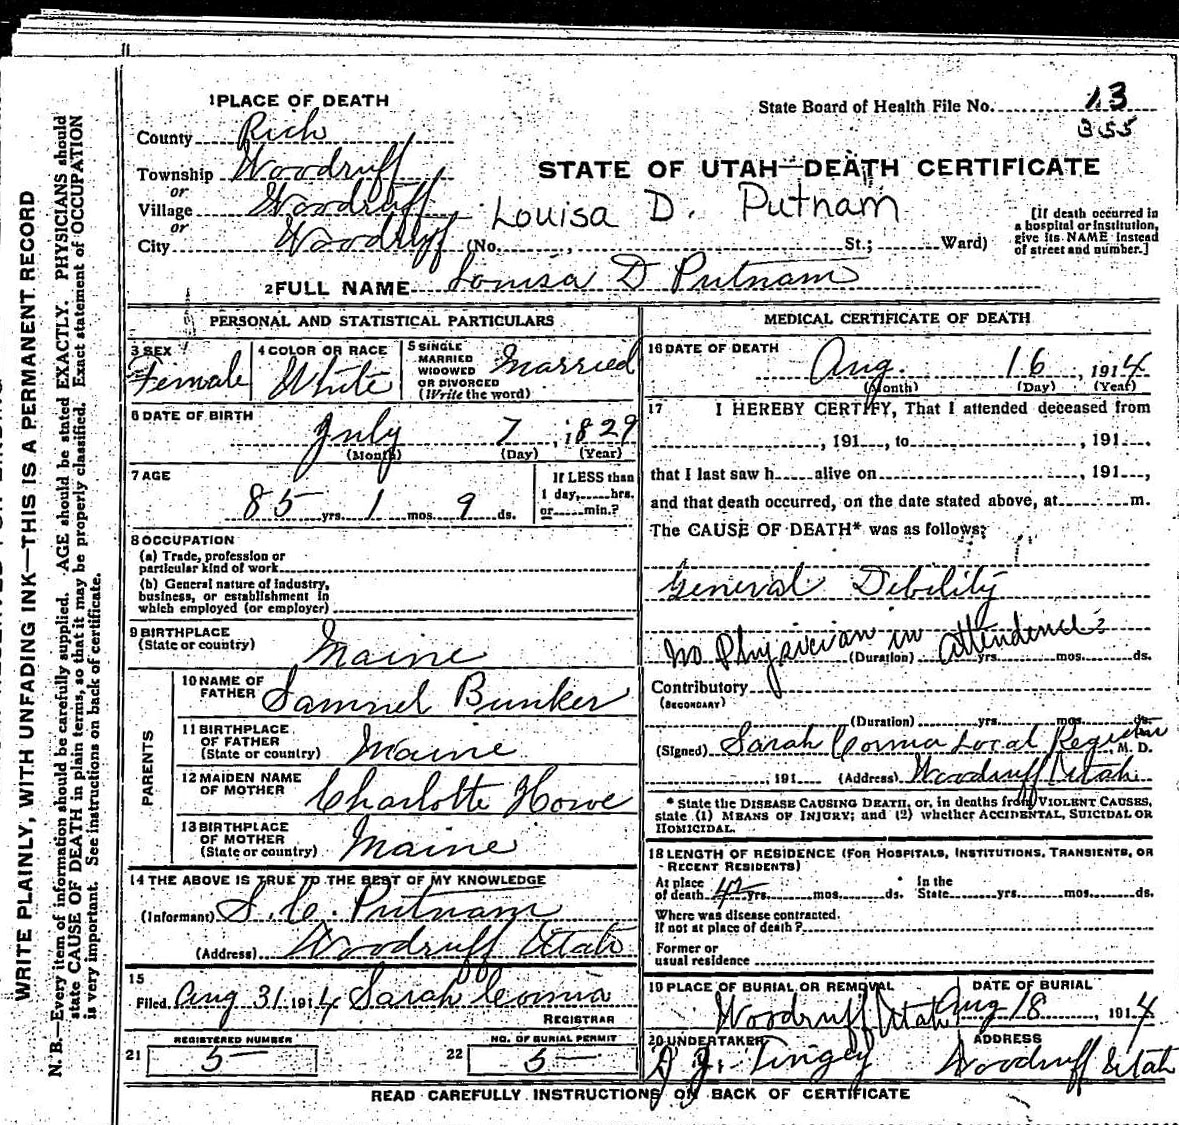 WRITE PLAINLY, WITH UNFADING INK—THIS IS A PERMANENT RECORD
N. B.—Every item of information should be carefully supplied. AGE should be stated EXACTLY. PHYSICIANS should
state CAUSE OF DEATH in plain terms, so that it may be properly classified. Exact statement of OCCUPATION
is very important. See instructions on back of certificate.
1 PLACE OF DEATH
State Board of Health File No. 13
355
County Rich
Township Woodruff
or
Village Woodruff
or
City Woodruff (No. , St.; Ward)
STATE OF UTAH—DEATH CERTIFICATE
Louisa D. Putnam
[If death occurred in
a hospital or institution,
give its NAME instead
of street and number.]
2 FULL NAME Louisa D Putnam
PERSONAL AND STATISTICAL PARTICULARS
3 SEX
Female
4 COLOR OR RACE
White
5 SINGLE
MARRIED
WIDOWED
OR DIVORCED
(Write the word)
Married
6 DATE OF BIRTH
July 7, 1829
(Month) (Day) (Year)
7 AGE
85 yrs. 1 mos. 9 ds.
If LESS than
1 day, hrs.
or min.?
8 OCCUPATION
(a) Trade, profession or
particular kind of work
(b) General nature of industry,
business, or establishment in
which employed (or employer)
9 BIRTHPLACE
(State or country)
Maine
PARENTS
10 NAME OF
FATHER
Samuel Bunker
11 BIRTHPLACE
OF FATHER
(State or country)
Maine
12 MAIDEN NAME
OF MOTHER
Charlotte Howe
13 BIRTHPLACE
OF MOTHER
(State or country)
Maine
14 THE ABOVE IS TRUE TO THE BEST OF MY KNOWLEDGE
(Informant) S. C. Putnam
(Address) Woodruff Utah
15
Filed Aug 31 1914 Sarah
REGISTRAR
REGISTERED NUMBER
21 5
NO. OF BURIAL PERMIT
22 5
MEDICAL CERTIFICATE OF DEATH
16 DATE OF DEATH
Aug. 16, 1914
(Month) (Day) (Year)
17 I HEREBY CERTIFY, That I attended deceased from
, 191 , to , 191 .
that I last saw h alive on , 191 ,
and that death occurred, on the date stated above, at m.
The CAUSE OF DEATH* was as follows:
General Dibility
no Physician in attendence
(Duration) yrs. mos. ds.
Contributory
(SECONDARY)
(Duration) yrs. mos. ds.
(Signed) Sarah Local Register, M. D.
, 191 (Address) Woodruff Utah
* State the DISEASE CAUSING DEATH, or, in deaths from VIOLENT CAUSES,
state (1) MEANS OF INJURY; and (2) whether ACCIDENTAL, SUICIDAL OR
HOMICIDAL.
18 LENGTH OF RESIDENCE (FOR HOSPITALS, INSTITUTIONS, TRANSIENTS, OR
RECENT RESIDENTS)
At place
of death yrs. mos. ds.
In the
State yrs. mos. ds.
Where was disease contracted.
If not at place of death?
Former or
usual residence
19 PLACE OF BURIAL OR REMOVAL
Woodruff Utah
DATE OF BURIAL
Aug 18, 1914
20 UNDERTAKER
D J. Tingey
ADDRESS
Woodruff Utah
READ CAREFULLY INSTRUCTIONS ON BACK OF CERTIFICATE